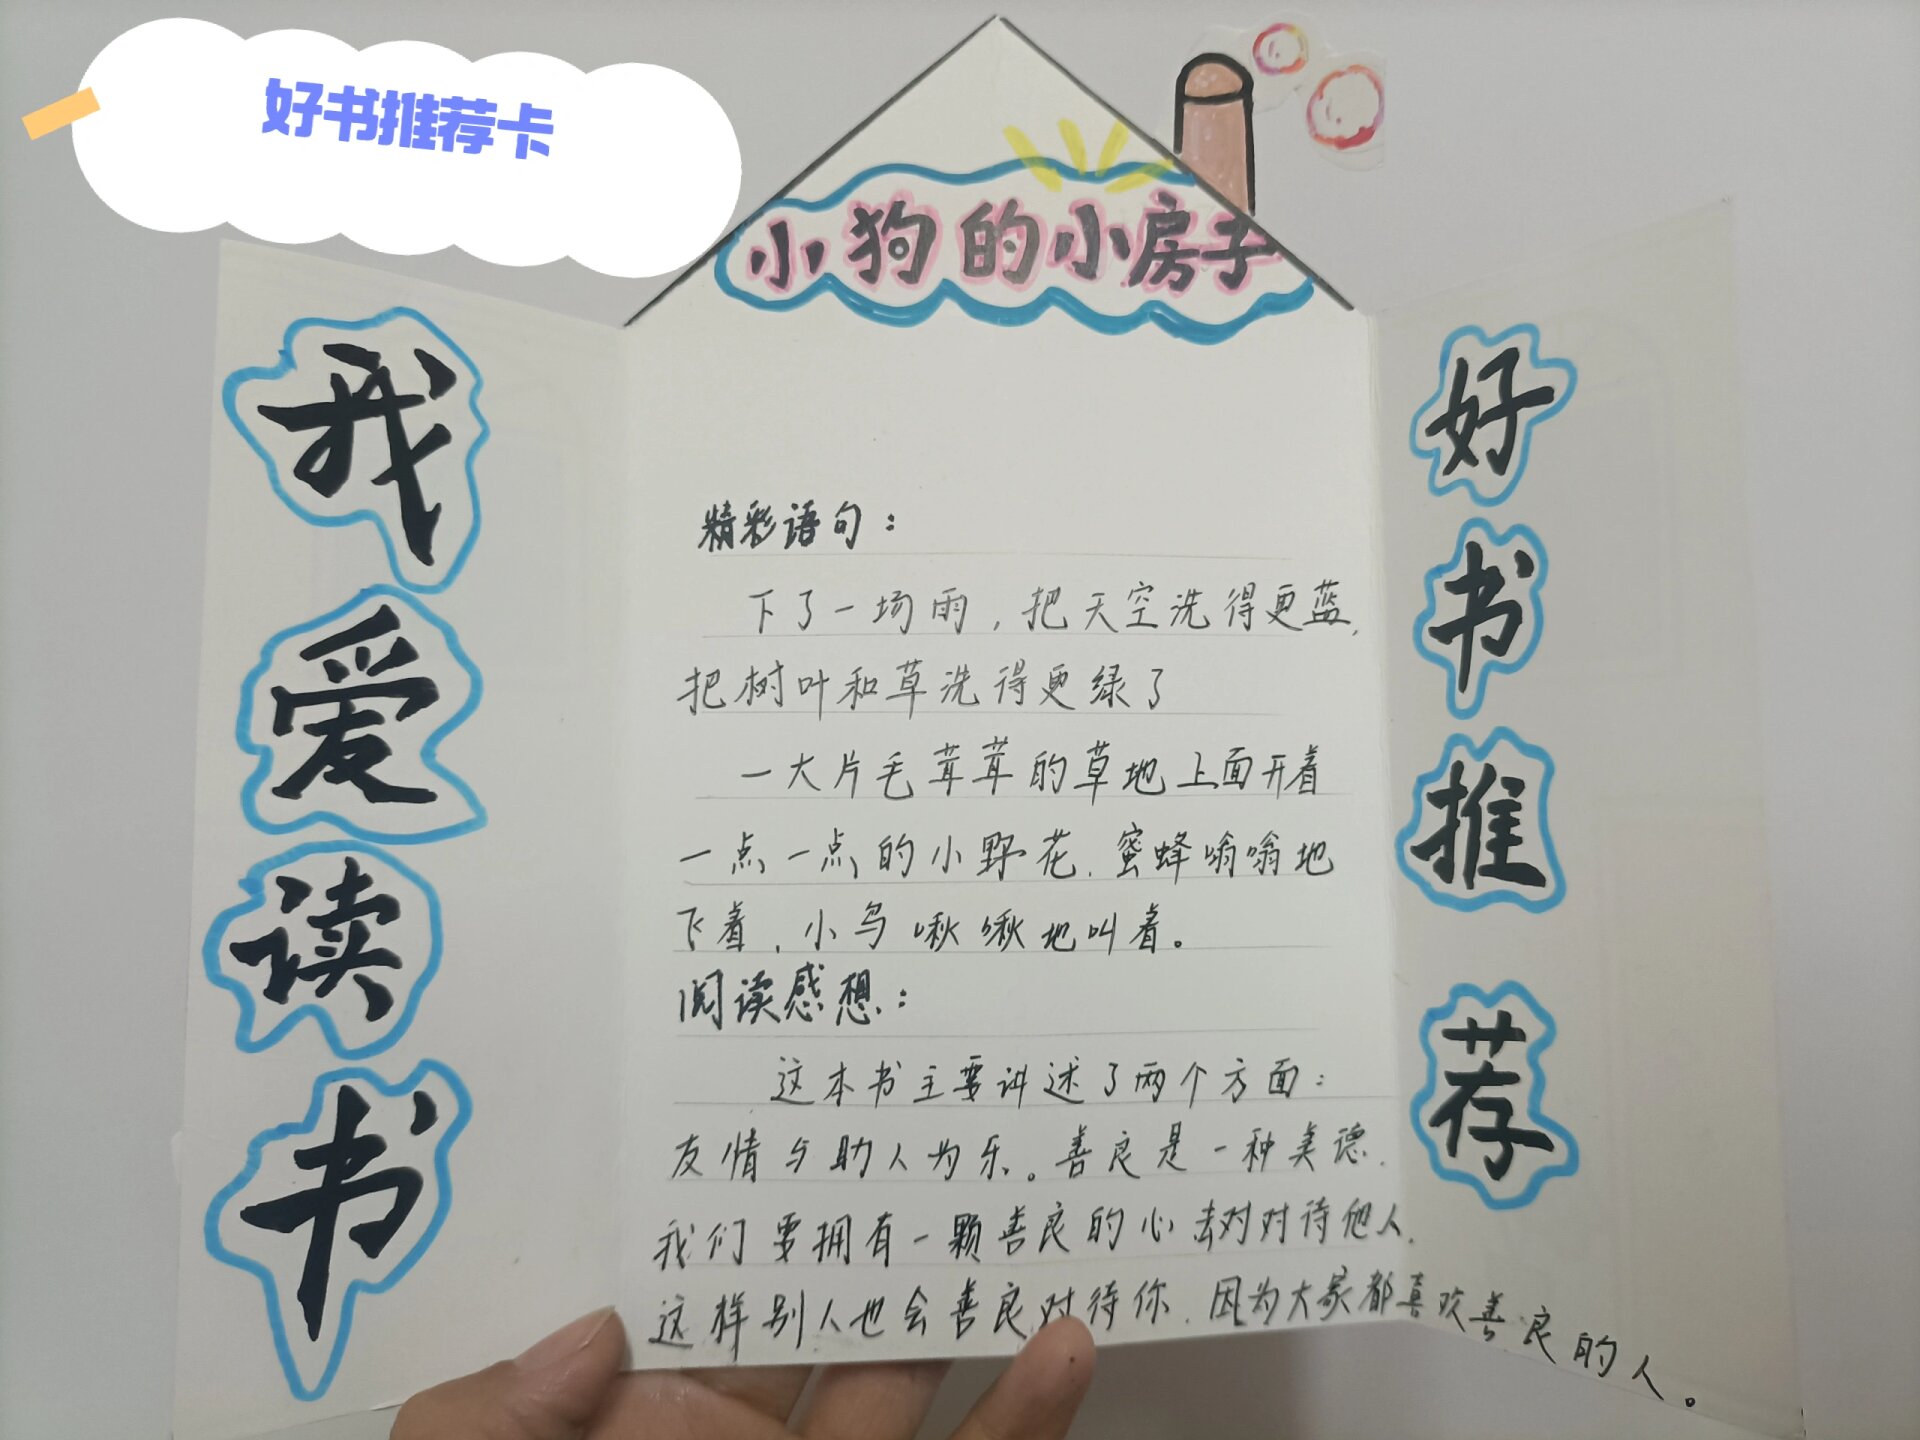 好书推荐卡
小狗的小房子
我爱读书
精彩语句：
下了一场雨，把天空洗得更蓝，
把树叶和草洗得更绿了
一大片毛茸茸的草地上面开着
一点一点的小野花，蜜蜂嗡嗡地
飞着，小鸟啾啾地叫着。
阅读感想：
这本书主要讲述了两个方面：
友情与助人为乐。善良是一种美德，
我们要拥有一颗善良的心去对对待他人，
这样别人也会善良对待你，因为大家都喜欢善良的人。
好书推荐